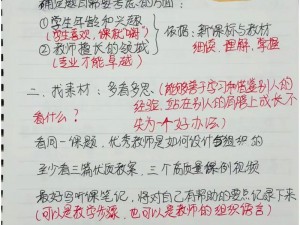 确定题目需要考虑的方面:
①学生年龄和兴趣
(学生喜欢,课就"嗨")
依据:新课标与教材
细读、理解、掌握
②教师擅长的领域
(专业才能卓越)
二、找素材:多看多思(能够善于学习和借鉴别人的
经验,站在别人的肩膀上成长不
失为一个好办法)
看什么?
看同一课题,优秀教师是如何设计与组织的
至少看三篇优质教案,三个高质量课例视频
最好写听课笔记,将对自己有帮助的要点记录下来
(可以是教学步骤,也可以是教师的组织语言)